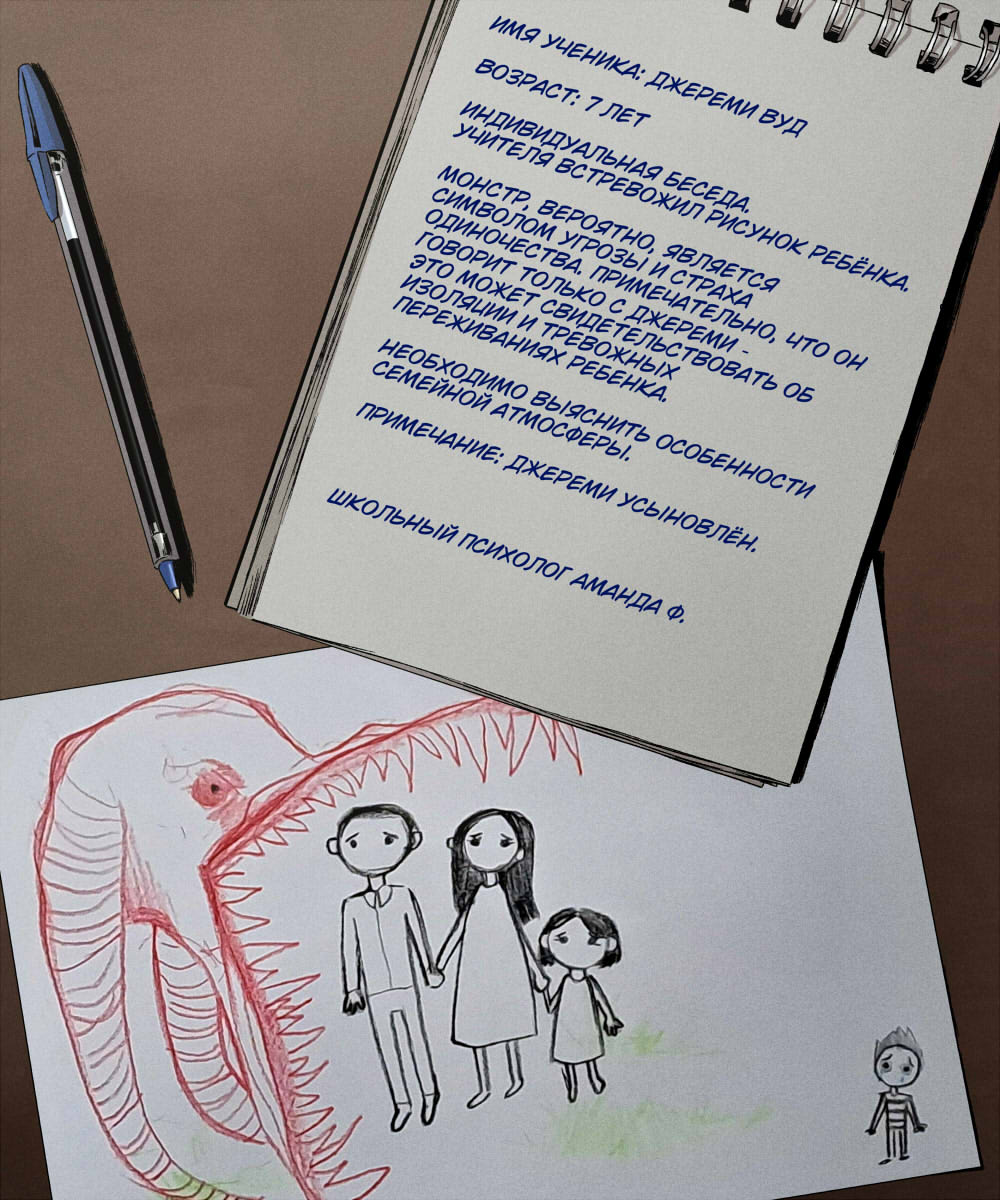 ИМЯ УЧЕНИКА: ДЖЕРЕМИ ВУД
ВОЗРАСТ: 7 ЛЕТ
ИНДИВИДУАЛЬНАЯ БЕСЕДА.
УЧИТЕЛЯ ВСТРЕВОЖИЛ РИСУНОК РЕБЁНКА.
МОНСТР, ВЕРОЯТНО, ЯВЛЯЕТСЯ
СИМВОЛОМ УГРОЗЫ И СТРАХА
ОДИНОЧЕСТВА. ПРИМЕЧАТЕЛЬНО, ЧТО ОН
ГОВОРИТ ТОЛЬКО С ДЖЕРЕМИ -
ЭТО МОЖЕТ СВИДЕТЕЛЬСТВОВАТЬ ОБ
ИЗОЛЯЦИИ И ТРЕВОЖНЫХ
ПЕРЕЖИВАНИЯХ РЕБЕНКА.
НЕОБХОДИМО ВЫЯСНИТЬ ОСОБЕННОСТИ
СЕМЕЙНОЙ АТМОСФЕРЫ.
ПРИМЕЧАНИЕ: ДЖЕРЕМИ УСЫНОВЛЁН.
ШКОЛЬНЫЙ ПСИХОЛОГ АМАНДА Ф.